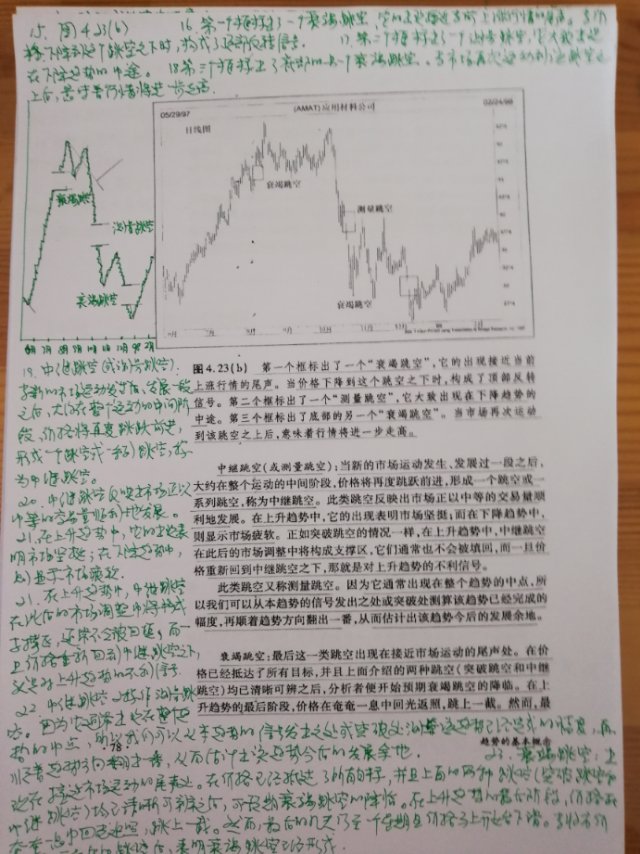 15. 图4.23(b) 16. 第一个框标出了一个衰竭跳空,它的出现接近当前上涨行情的尾声。当价
格下降到这个跳空之下时,构成了顶部反转信号。 17. 第二个框标出了一个测量跳空,它大致出现
在下降趋势的中途。 18. 第三个框标出了底部的另一个衰竭跳空。当市场再次运动到该跳空之
上后,意味着行情将进一步走高。
05/29/97
(AMAT)应用材料公司
02/24/98
日线图
衰竭跳空
测量跳空
衰竭跳空
衰竭跳空
测量跳空
衰竭跳空
图4.23(b) 第一个框标出了一个“衰竭跳空”,它的出现接近当前
上涨行情的尾声。当价格下降到这个跳空之下时,构成了顶部反转
信号。第二个框标出了一个“测量跳空”,它大致出现在下降趋势的
中途。第三个框标出了底部的另一个“衰竭跳空”。当市场再次运动
到该跳空之上后,意味着行情将进一步走高。
中继跳空(或测量跳空):当新的市场运动发生、发展过一段之后,
大约在整个运动的中间阶段,价格将再度跳跃前进,形成一个跳空或一
系列跳空,称为中继跳空。此类跳空反映出市场正以中等的交易量顺
利地发展。在上升趋势中,它的出现表明市场坚挺;而在下降趋势中,
则显示市场疲软。正如突破跳空的情况一样,在上升趋势中,中继跳空
在此后的市场调整中将构成支撑区,它们通常也不会被填回,而一旦价
格重新回到中继跳空之下,那就是对上升趋势的不利信号。
此类跳空又称测量跳空。因为它通常出现在整个趋势的中点,所
以我们可以从本趋势的信号发出之处或突破处测算该趋势已经完成的
幅度,再顺着趋势方向翻出一番,从而估计出该趋势今后的发展余地。
衰竭跳空:最后这一类跳空出现在接近市场运动的尾声处。在价
格已经抵达了所有目标,并且上面介绍的两种跳空(突破跳空和中继
跳空)均已清晰可辨之后,分析者便开始预期衰竭跳空的降临。在上
升趋势的最后阶段,价格在奄奄一息中回光返照,跳上一截。然而,最
78
趋势的基本概念
19. 中继跳空(或测量跳空):
当新的市场运动发生、发展一段
之后,大约在整个运动的中间阶
段,价格将再度跳跃前进,
形成一个跳空或一系列跳空,称
为中继跳空。
20. 中继跳空反映出市场正以
中等的交易量顺利地发展。
21. 在上升趋势中,它的出现表
明市场坚挺;在下降趋势中,
则显示市场疲软。
21. 在上升趋势中,中继跳空
在此后的市场调整中将构成
支撑区,通常不会被回填。而一
旦价格重新回到中继跳空之下,
又是对上升趋势的不利信号。
22. 中继跳空又称作测量跳
空。因为它通常出现在整个趋
势的中点,所以我们可以从本趋势的信号发出之处或突破处测算该趋势已经完成的幅度,再
顺着趋势方向翻出一番,从而估计出该趋势今后的发展余地。
23. 衰竭跳空:出
现在接近市场运动的尾声处。在价格已经抵达了所有目标,并且上面的两种跳空(突破跳空和
中继跳空)均已清晰可辨之后,可预期衰竭跳空的降临。在上升趋势的最后阶段,价格在
奄奄一息中回光返照,跳上一截。然而,
表明衰竭跳空已经形成。